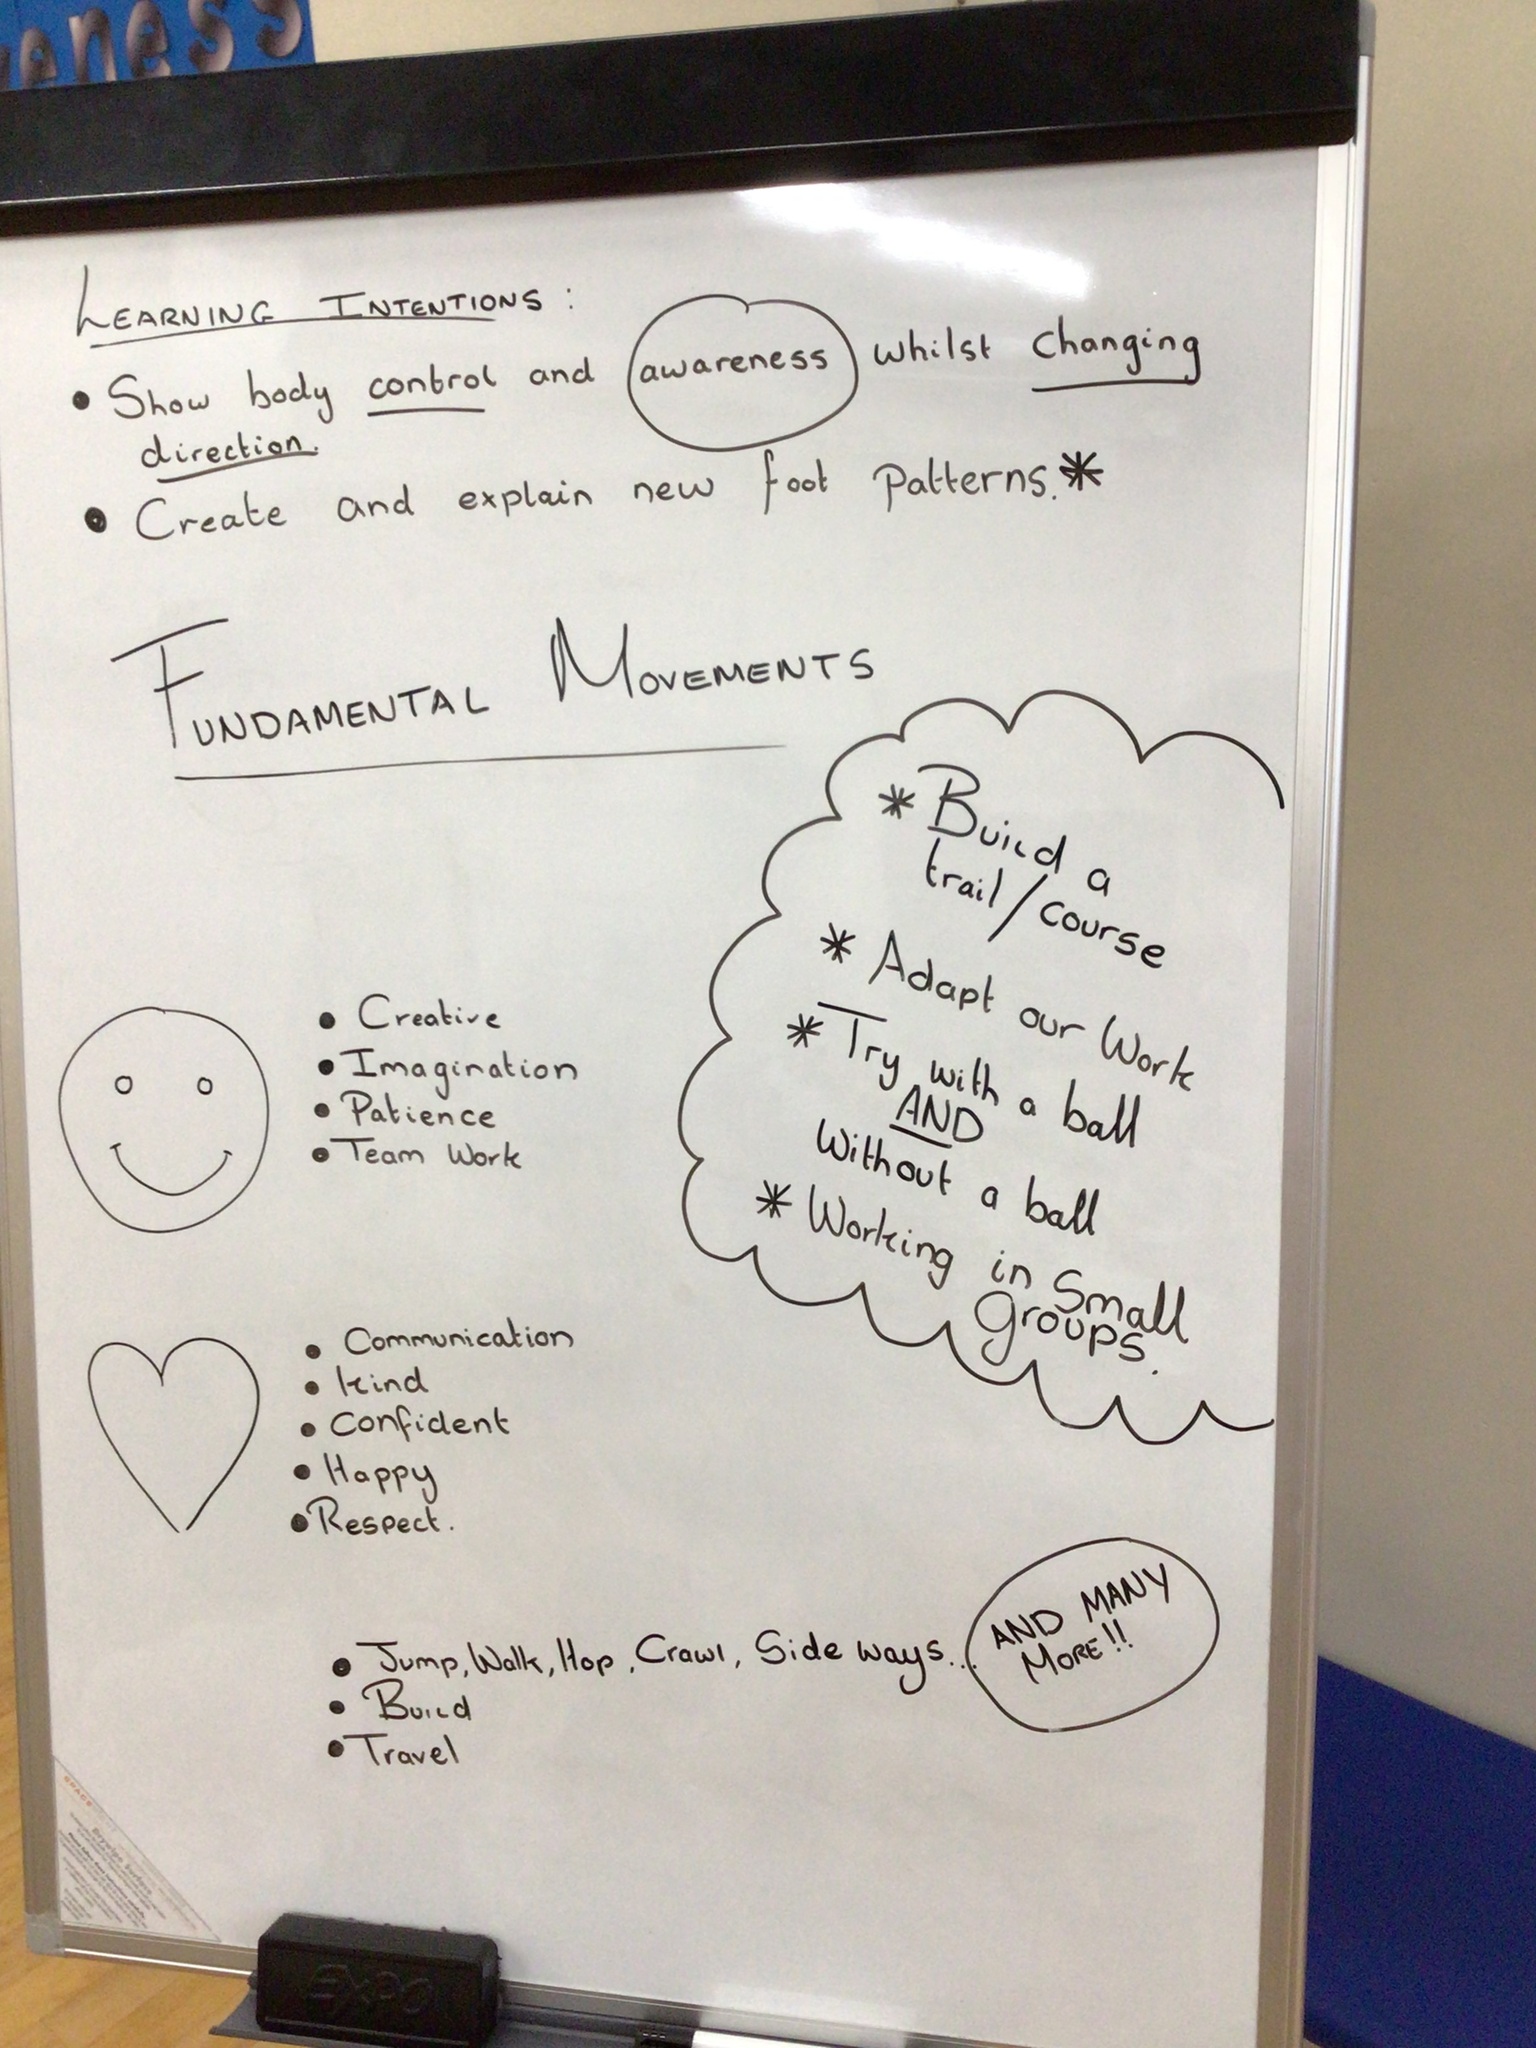 eness
LEARNING INTENTIONS:
• Show body control and awareness whilst changing
direction.
• Create and explain new foot patterns.*
FUNDAMENTAL MOVEMENTS
* Build a
trail/course
* Adapt our Work
* Try with a ball
AND
Without a ball
* Working in Small
groups.
• Creative
• Imagination
• Patience
• Team Work
• Communication
• kind
• Confident
• Happy
• Respect.
• Jump, Walk, Hop, Crawl, Side ways...
AND MANY
MORE!!
• Build
• Travel
SPACE
EXPO